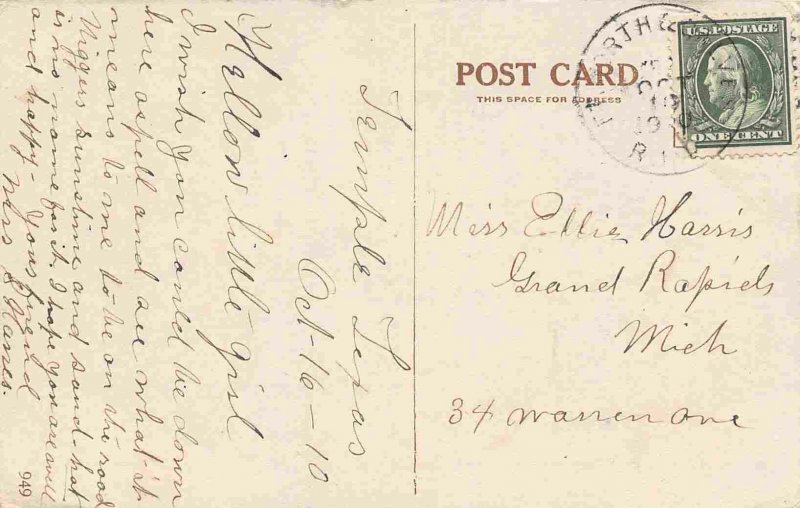 Temple Texas
Oct-16-10
Hellow little girl
I wish you could be down
here a spell and see what it
means to me to-be on the road
Niggers sunshine and sand-hot
is no name for it. I hope you are well
and happy- Your friend
949
POST CARD
THIS SPACE FOR ADDRESS
U.S. POSTAGE
ONE CENT
Miss Ellie Harris
Grand Rapids
Mich
34 Warren ave